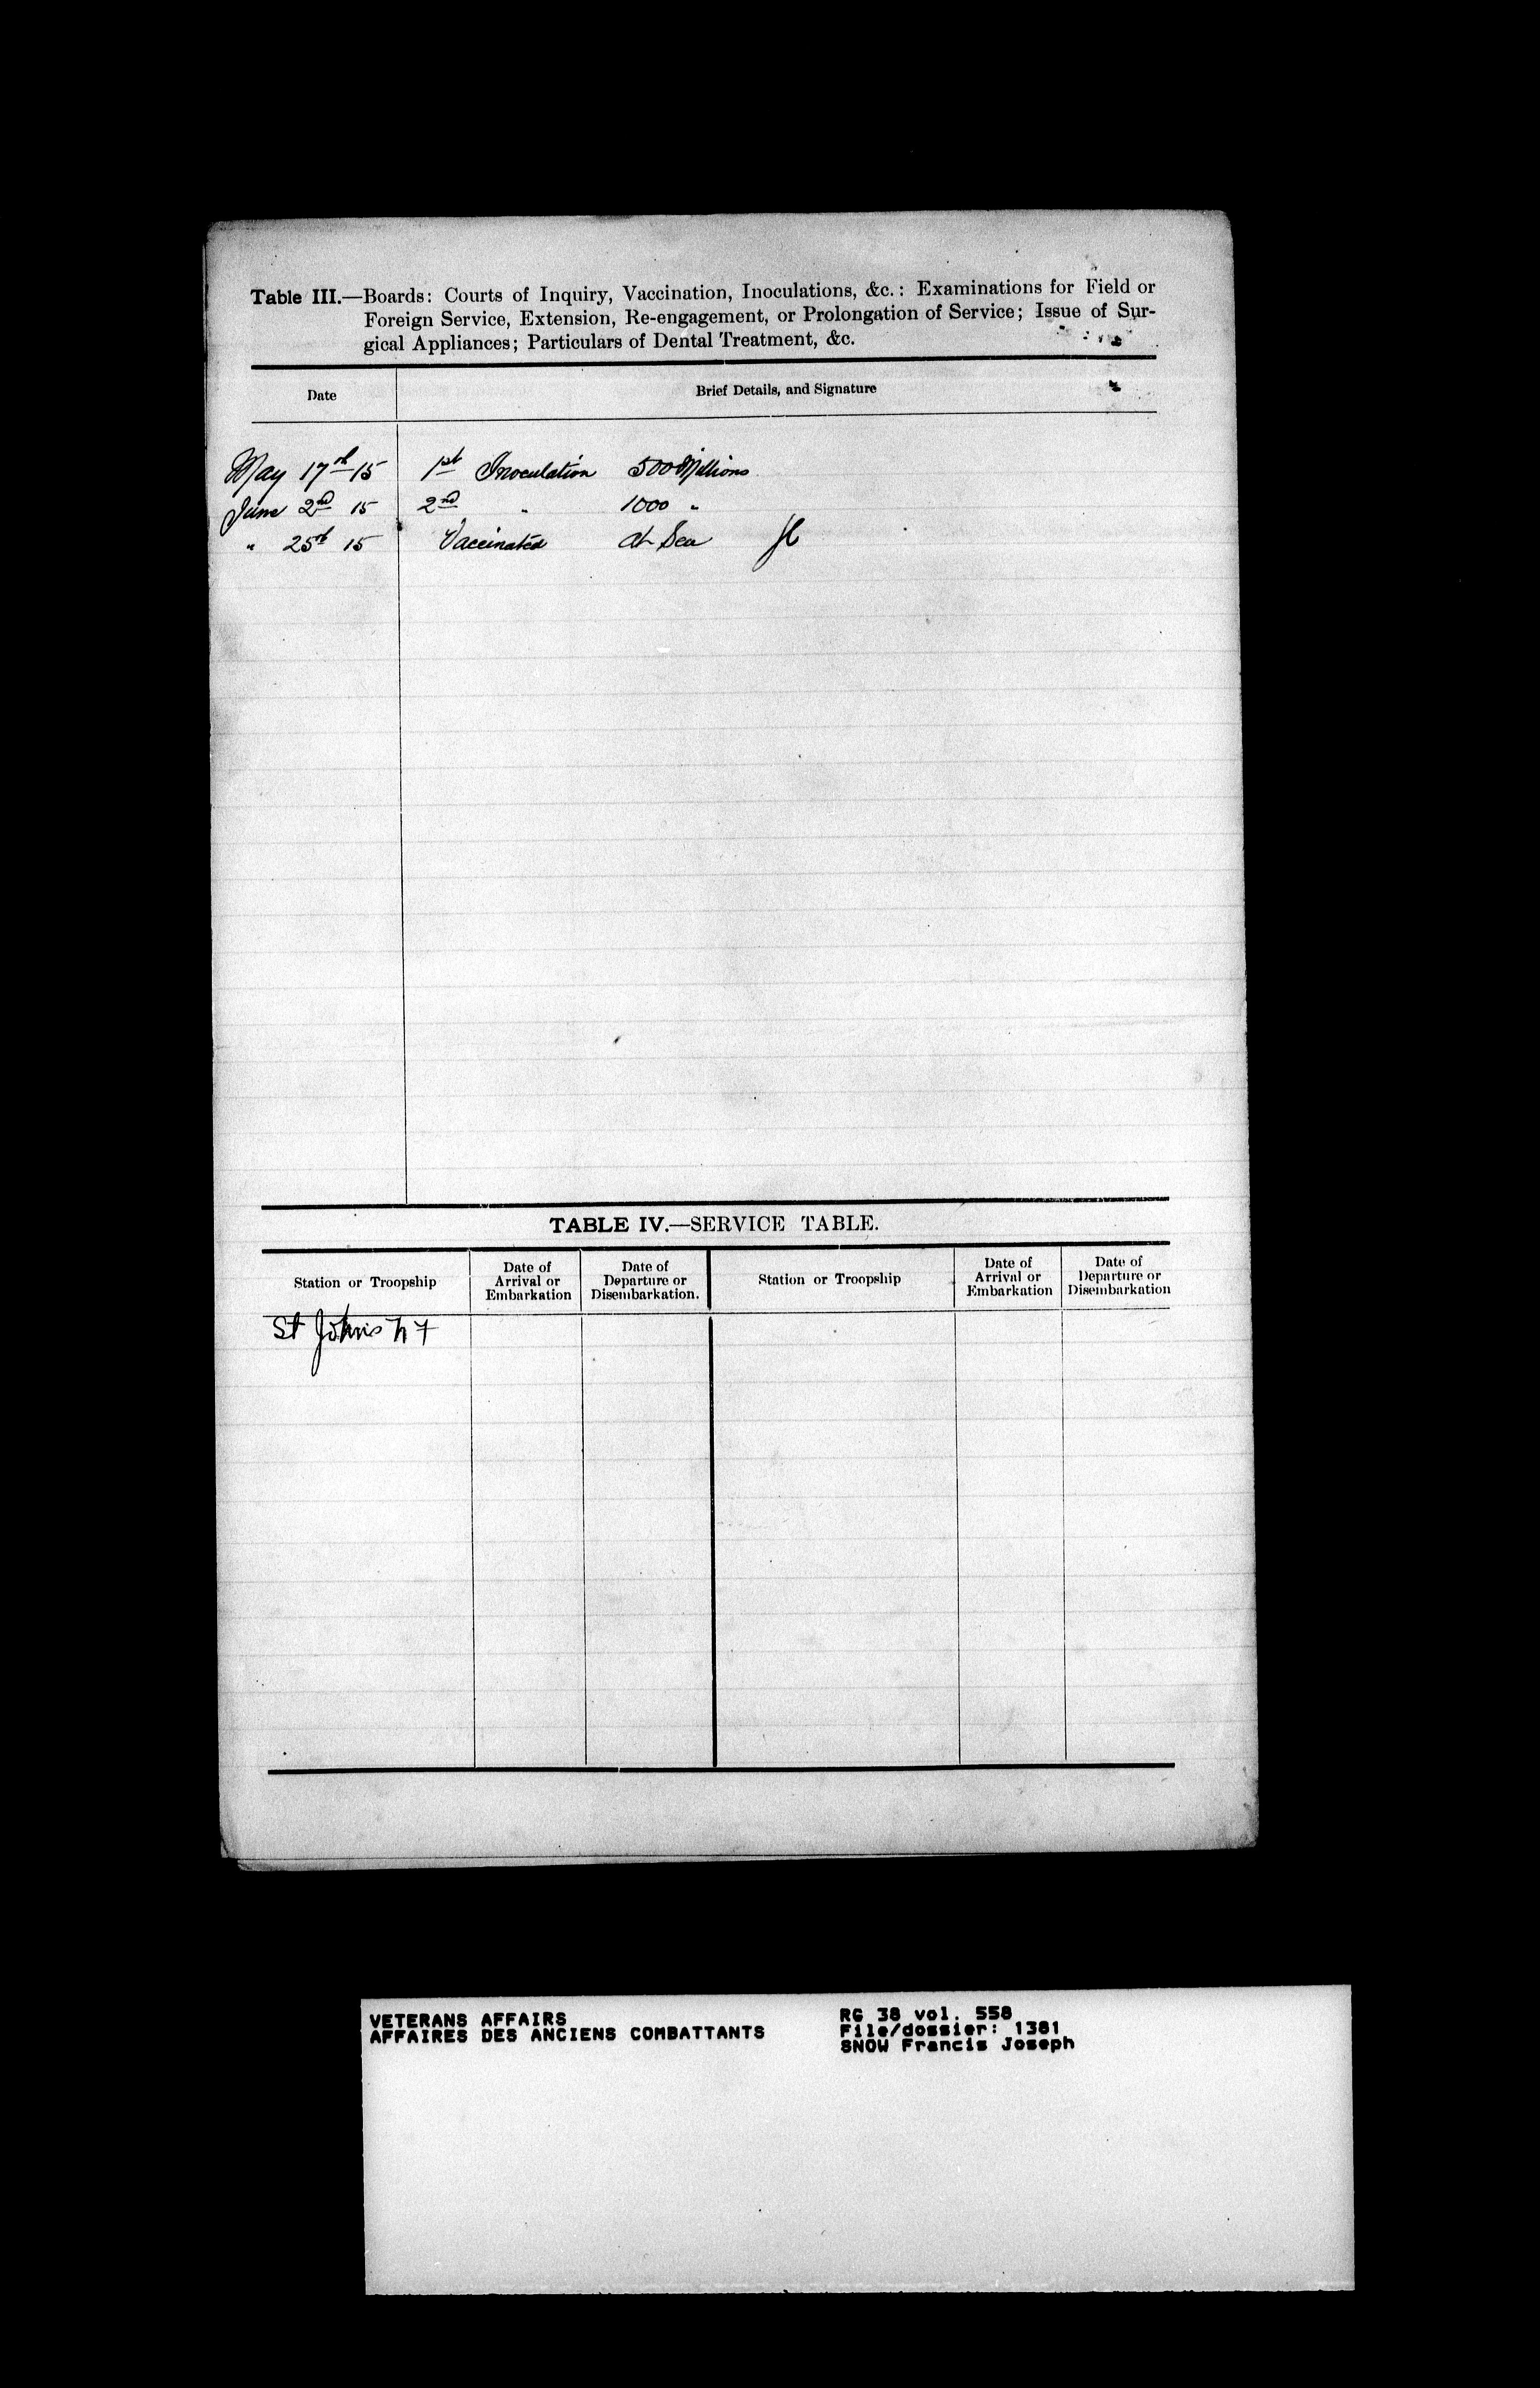 Table III.—Boards: Courts of Inquiry, Vaccination, Inoculations, &c.: Examinations for Field or
Foreign Service, Extension, Re-engagement, or Prolongation of Service; Issue of Sur-
gical Appliances; Particulars of Dental Treatment, &c.
Date Brief Details, and Signature
May 17th 15 1st Inoculation 500 Millions
June 2nd 15 2nd " 1000 "
" 25th 15 Vaccinated at Sea
TABLE IV.—SERVICE TABLE.
Station or Troopship Date of Arrival or Embarkation Date of Departure or Disembarkation. Station or Troopship Date of Arrival or Embarkation Date of Departure or Disembarkation
St Johns Nf
VETERANS AFFAIRS
AFFAIRES DES ANCIENS COMBATTANTS
RG 38 vol. 558
File/dossier: 1381
SNOW Francis Joseph